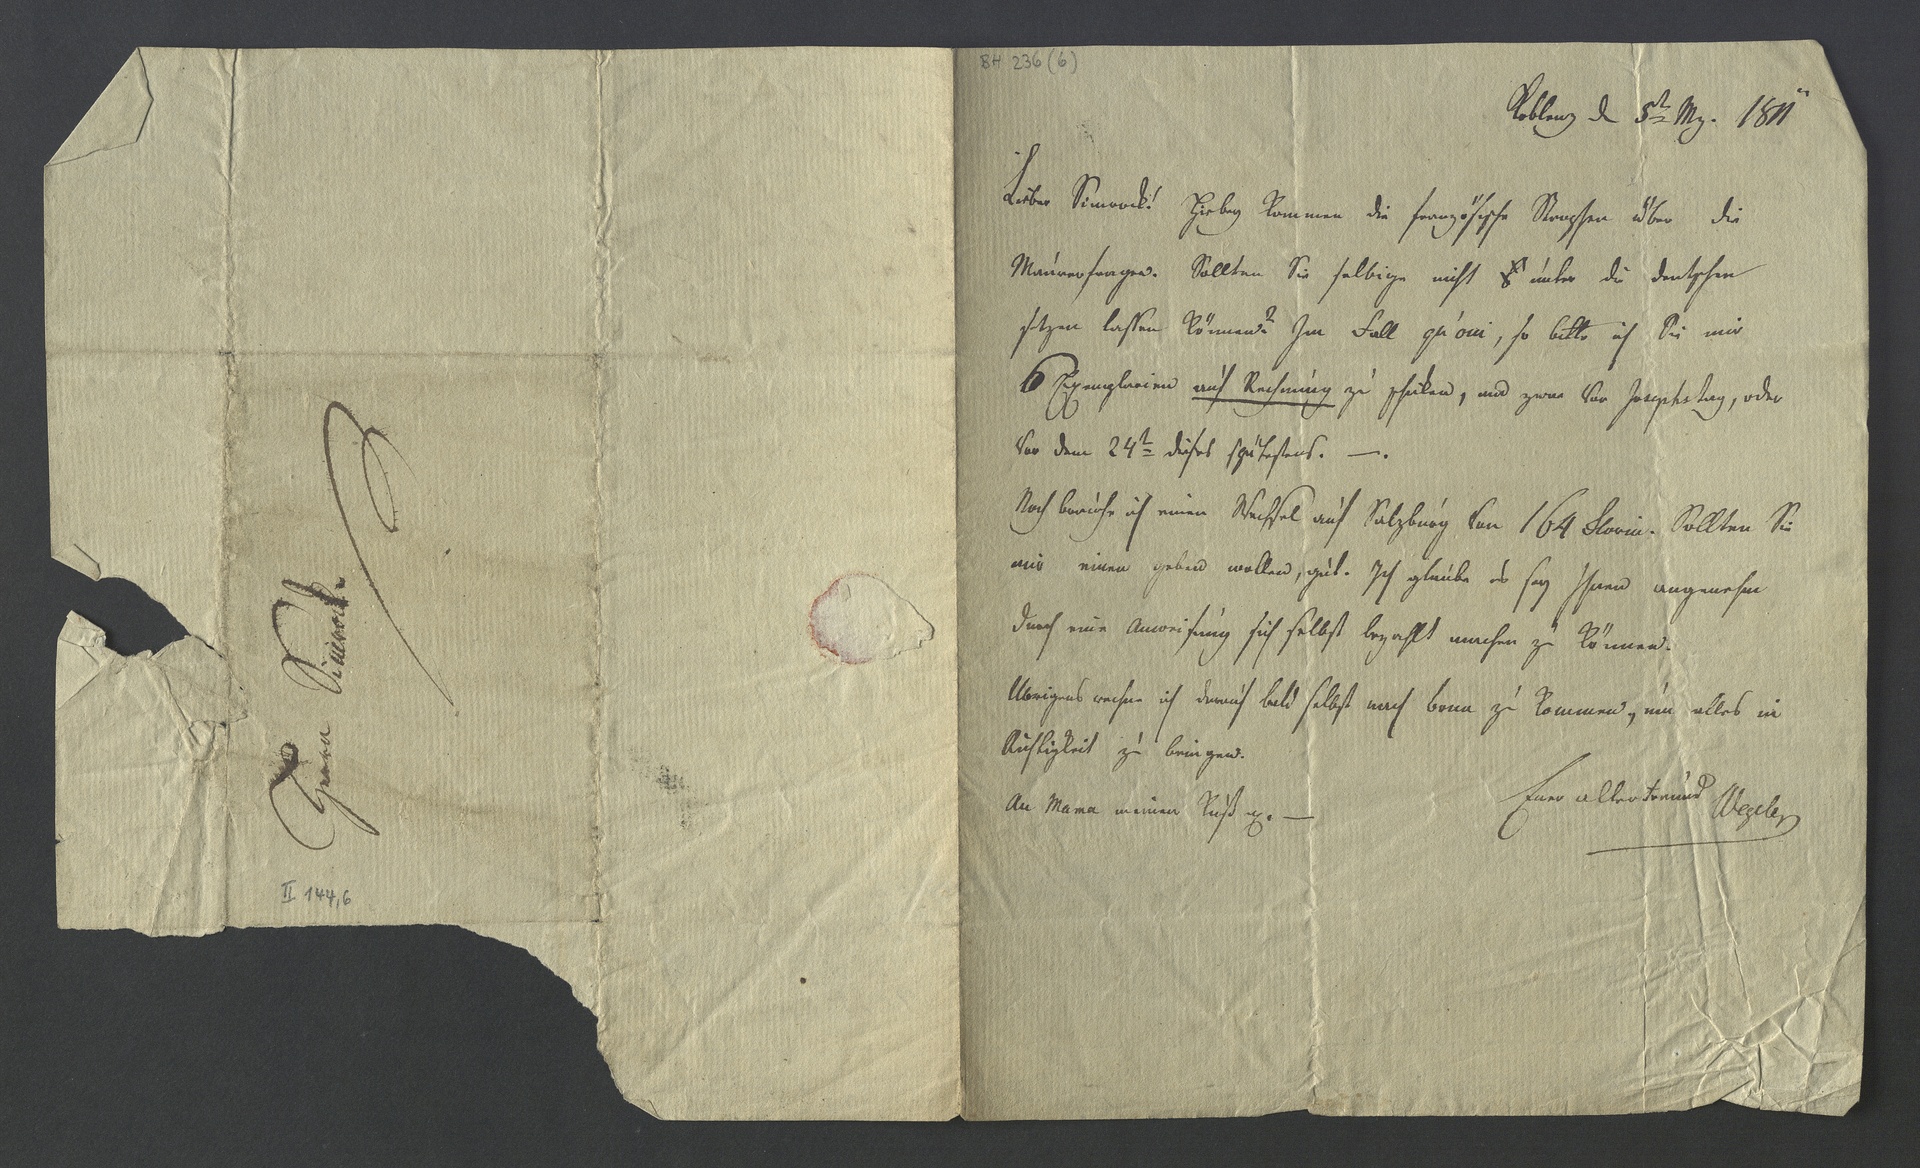 Herrn Simrock.
II 144,6
BH 236 (6)
Koblenz d 5t Mz. 1811
Lieber Simrock! Hiebey kommen die französische Strophen über die
Maurerfragen. Sollten Sie selbige nicht unter die deutschen
setzen lassen können? Im Fall qu'oui, so bitte ich Sie mir
6 Exemplarien auf Rechnung zu schicken, und zwar vor Josephstag, oder
vor dem 24t dieses spätestens. —.
Noch brauche ich einen Wechsel auf Salzburg von 164 Florin. Sollten Sie
mir einen geben wollen, gut. Ich glaube es sey Ihnen angenehm
durch eine Anweisung sich selbst bezahlt machen zu können.
Übrigens rechne ich darauf bald selbst nach bonn zu kommen, um alles in
Richtigkeit zu bringen.
An Mama meinen Kuß —
Euer alter Freund Wegeler